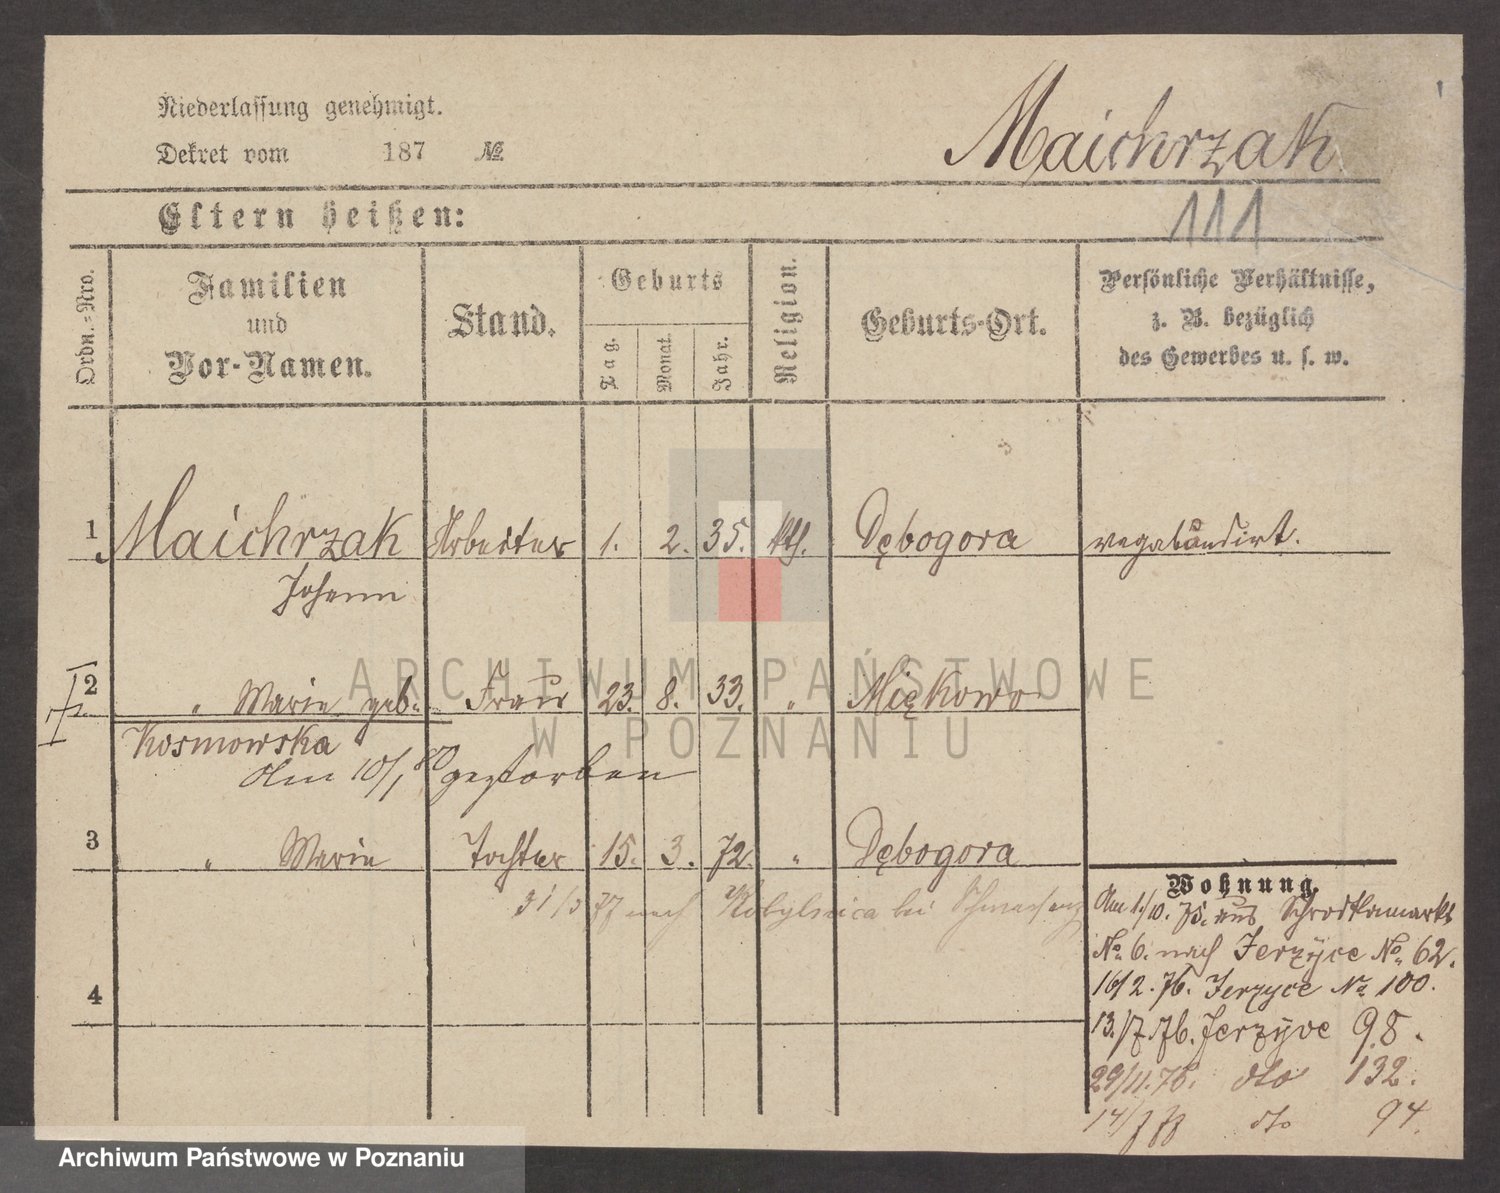 Niederlassung genehmigt.
Dekret vom 187 №
Maichrzak
Eltern heißen:
111
Ordn.-Nro.
Familien
und
Vor-Namen.
Stand.
Geburts
Tag.
Monat.
Jahr.
Religion.
Geburts-Ort.
Persönliche Verhältnisse,
z. B. bezüglich
des Gewerbes u. s. w.
1 Maichrzak Arbeiter 1. 2. 35. kth. Dębogora vagabundirt.
Johann
2 " Marie geb. Frau 23. 8. 33. " Miękowo
Kosmowska
Am 10/1 80 gestorben
3 " Marie Tochter 15. 3. 72. " Dębogora
31/3 77 nach Kobylnica bei Schwersenz
4
Wohnung.
Am 1./10. 75. aus Schrodkamarkt
No 6. nach Jerzyce No 62.
16/2. 76. Jerzyce No 100.
13./7. 76. Jerzyce 98.
29/11. 76. dto 132.
14/7 77 dto 94.
ARCHIWUM PAŃSTWOWE
W POZNANIU
Archiwum Państwowe w Poznaniu